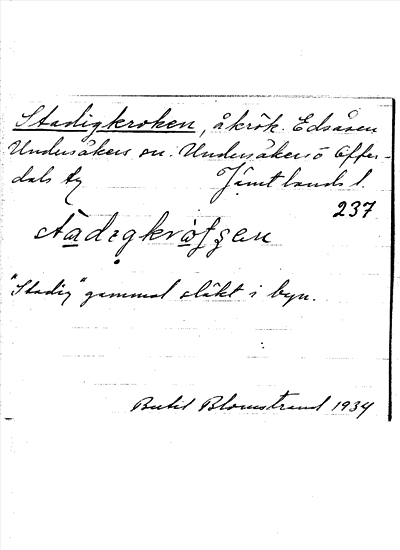 Stadigkroken, åkrök. Edsåsen
Undersåkers sn. Undersåkers o Offer-
dals tg Jämtlands l.
237
"Stadig" gammal släkt i byn.
Bertil Blomstrand 1934